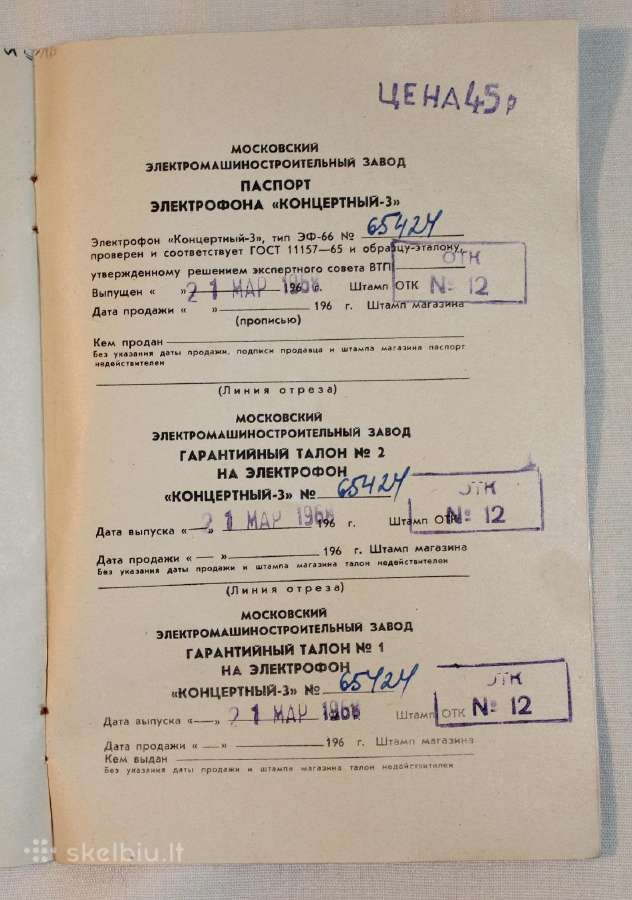 ЦЕНА 45 р
МОСКОВСКИЙ
ЭЛЕКТРОМАШИНОСТРОИТЕЛЬНЫЙ ЗАВОД
ПАСПОРТ
ЭЛЕКТРОФОНА «КОНЦЕРТНЫЙ-3»
Электрофон «Концертный-3», тип ЭФ-66 № 65424
проверен и соответствует ГОСТ 11157—65 и образцу-эталону,
утвержденному решением экспертного совета ВТП
ОТК
Выпущен « » 21 МАР 196 г. Штамп ОТК № 12
Дата продажи « » 196 г. Штамп магазина
(прописью)
Кем продан
Без указания даты продажи, подписи продавца и штампа магазина паспорт
недействителен
(Линия отреза)
МОСКОВСКИЙ
ЭЛЕКТРОМАШИНОСТРОИТЕЛЬНЫЙ ЗАВОД
ГАРАНТИЙНЫЙ ТАЛОН № 2
НА ЭЛЕКТРОФОН
«КОНЦЕРТНЫЙ-3» № 65424
ОТК
Дата выпуска « — » 21 МАР 196 г. Штамп ОТК № 12
Дата продажи « — » 196 г. Штамп магазина
Без указания даты продажи и штампа магазина талон недействителен
(Линия отреза)
МОСКОВСКИЙ
ЭЛЕКТРОМАШИНОСТРОИТЕЛЬНЫЙ ЗАВОД
ГАРАНТИЙНЫЙ ТАЛОН № 1
НА ЭЛЕКТРОФОН
«КОНЦЕРТНЫЙ-3» № 65424
ОТК
Дата выпуска «—» 21 МАР 196 г. Штамп ОТК № 12
Дата продажи « — » 196 г. Штамп магазина
Кем выдан
Без указания даты продажи и штампа магазина талон недействителен
skelbiu.lt